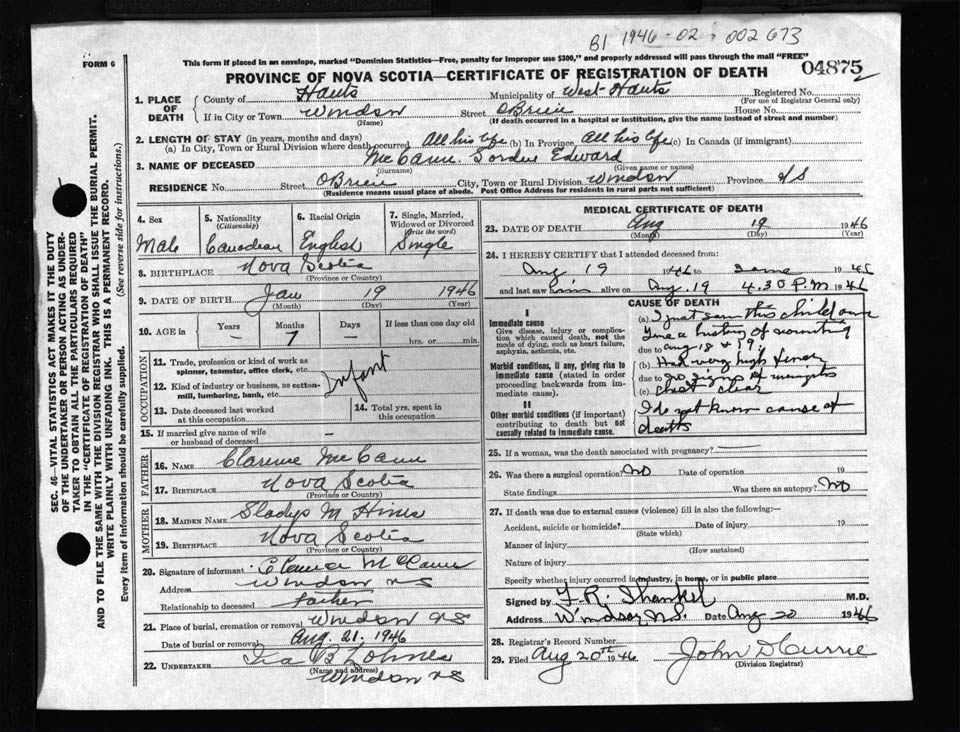 B1 1946-02-002673
FORM 6
This form if placed in an envelope, marked "Dominion Statistics—Free, penalty for improper use $300," and properly addressed will pass through the mail "FREE"
PROVINCE OF NOVA SCOTIA—CERTIFICATE OF REGISTRATION OF DEATH
04875
SEC. 46—VITAL STATISTICS ACT MAKES IT THE DUTY
OF THE UNDERTAKER OR PERSON ACTING AS UNDER-
TAKER TO OBTAIN ALL THE PARTICULARS REQUIRED
IN THE "CERTIFICATE OF REGISTRATION OF DEATH"
AND TO FILE THE SAME WITH THE DIVISION REGISTRAR WHO SHALL ISSUE THE BURIAL PERMIT.
WRITE PLAINLY WITH UNFADING INK. THIS IS A PERMANENT RECORD.
Every item of information should be carefully supplied. (See reverse side for instructions.)
1. PLACE OF DEATH
County of Hants Municipality of West Hants Registered No.
(For use of Registrar General only)
If in City or Town Windsor Street O'Brien House No.
(Name) (If death occurred in a hospital or institution, give the name instead of street and number)
2. LENGTH OF STAY (in years, months and days)
(a) In City, Town or Rural Division where death occurred All his life (b) In Province All his life (c) In Canada (if immigrant)
3. NAME OF DECEASED McCann Gordon Edward
(Surname) (Given name or names)
RESIDENCE No. Street O'Brien City, Town or Rural Division Windsor Province NS
(Residence means usual place of abode. Post Office Address for residents in rural parts not sufficient)
4. Sex Male
5. Nationality (Citizenship) Canadian
6. Racial Origin English
7. Single, Married, Widowed or Divorced (Write the word) Single
8. BIRTHPLACE Nova Scotia
(Province or Country)
9. DATE OF BIRTH Jan 19 1946
(Month) (Day) (Year)
10. AGE in Years – Months 7 Days – If less than one day old
hrs. or min.
OCCUPATION
11. Trade, profession or kind of work as spinner, teamster, office clerk, etc.
Infant
12. Kind of industry or business, as cotton-mill, lumbering, bank, etc.
13. Date deceased last worked at this occupation
14. Total yrs. spent in this occupation
15. If married give name of wife or husband of deceased –
FATHER
16. NAME Clarence McCann
17. BIRTHPLACE Nova Scotia
(Province or Country)
MOTHER
18. MAIDEN NAME Gladys M Hines
19. BIRTHPLACE Nova Scotia
(Province or Country)
20. Signature of informant Clarence McCann
Address Windsor NS
Relationship to deceased Father
21. Place of burial, cremation or removal Windsor NS
Date of burial or removal Aug. 21. 1946
22. UNDERTAKER Ira B Lohnes
(Name and address) Windsor NS
MEDICAL CERTIFICATE OF DEATH
23. DATE OF DEATH Aug 19 1946
(Month) (Day) (Year)
24. I HEREBY CERTIFY that I attended deceased from:
Aug 19 1946 to same 1946
and last saw him alive on Aug. 19 4.30 P.M 1946
CAUSE OF DEATH
I
Immediate cause
Give disease, injury or complication which caused death, not the mode of dying, such as heart failure, asphyxia, asthenia, etc.
Morbid conditions, if any, giving rise to immediate cause (stated in order proceeding backwards from immediate cause).
II
Other morbid conditions (if important) contributing to death but not causally related to immediate cause.
(a) I just saw this child once
a history of vomiting
due to Aug 18 & 19.
(b) Had very high fever
due to no signs of
(c) Chest clear
I do not know cause of
death
25. If a woman, was the death associated with pregnancy? –
26. Was there a surgical operation? No Date of operation 19
State findings Was there an autopsy? No
27. If death was due to external causes (violence) fill in also the following:—
Accident, suicide or homicide? Date of injury 19
(State which)
Manner of injury
(How sustained)
Nature of injury
Specify whether injury occurred in industry, in home, or in public place
Signed by F. R. Shankel M.D.
Address Windsor, N.S. Date Aug 20 1946
28. Registrar's Record Number
29. Filed Aug 20th 1946 John D Currie
(Division Registrar)